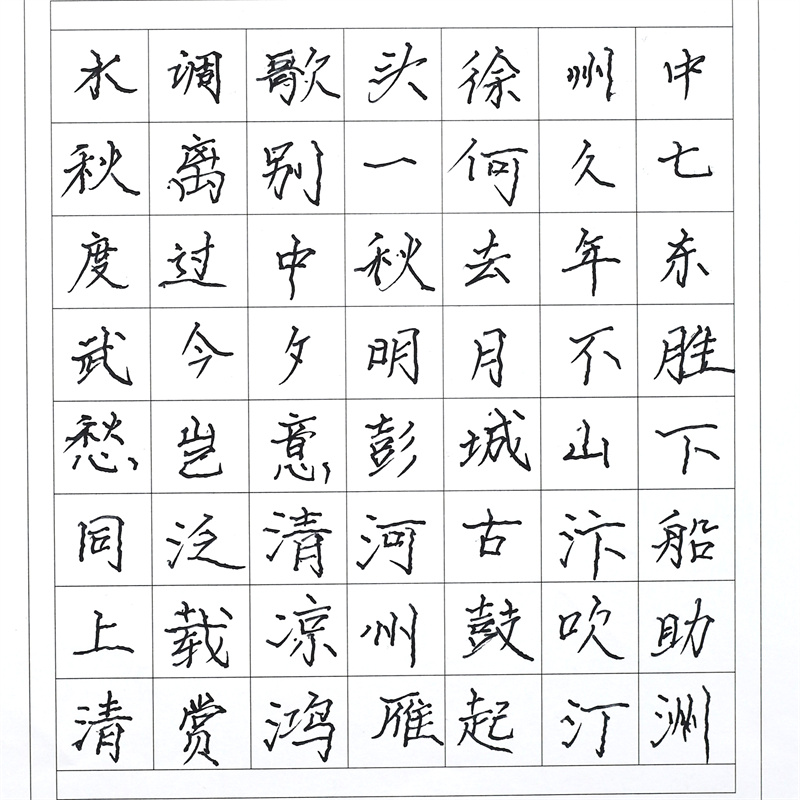 水调歌头徐州中
秋离别一何久七
度过中秋去年东
武今夕明月不胜
愁岂意彭城山下
同泛清河古汴船
上载凉州鼓吹助
清赏鸿雁起汀洲